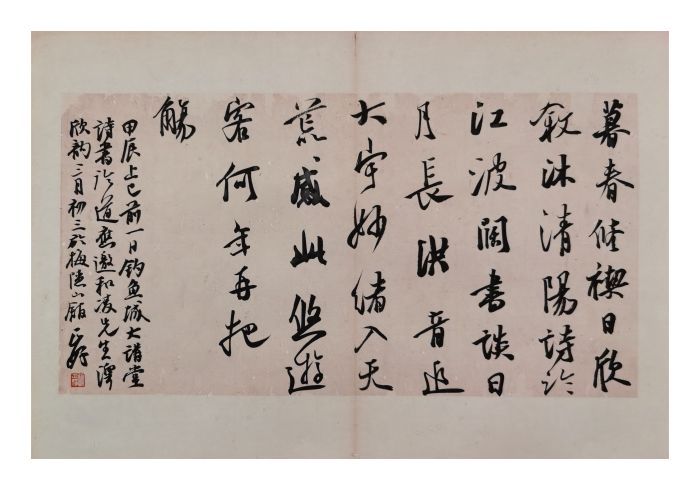 暮春修禊日欣
叙沐清陽詩論
江波闊書談日
月長洪音迴
大宇妙緒入天
荒感此悠遊
客何年再把
觴
甲辰上巳前一日釣魚城大堂
詩書論道應邀和凌先生澤
欣韵三月初三於梅隱山館